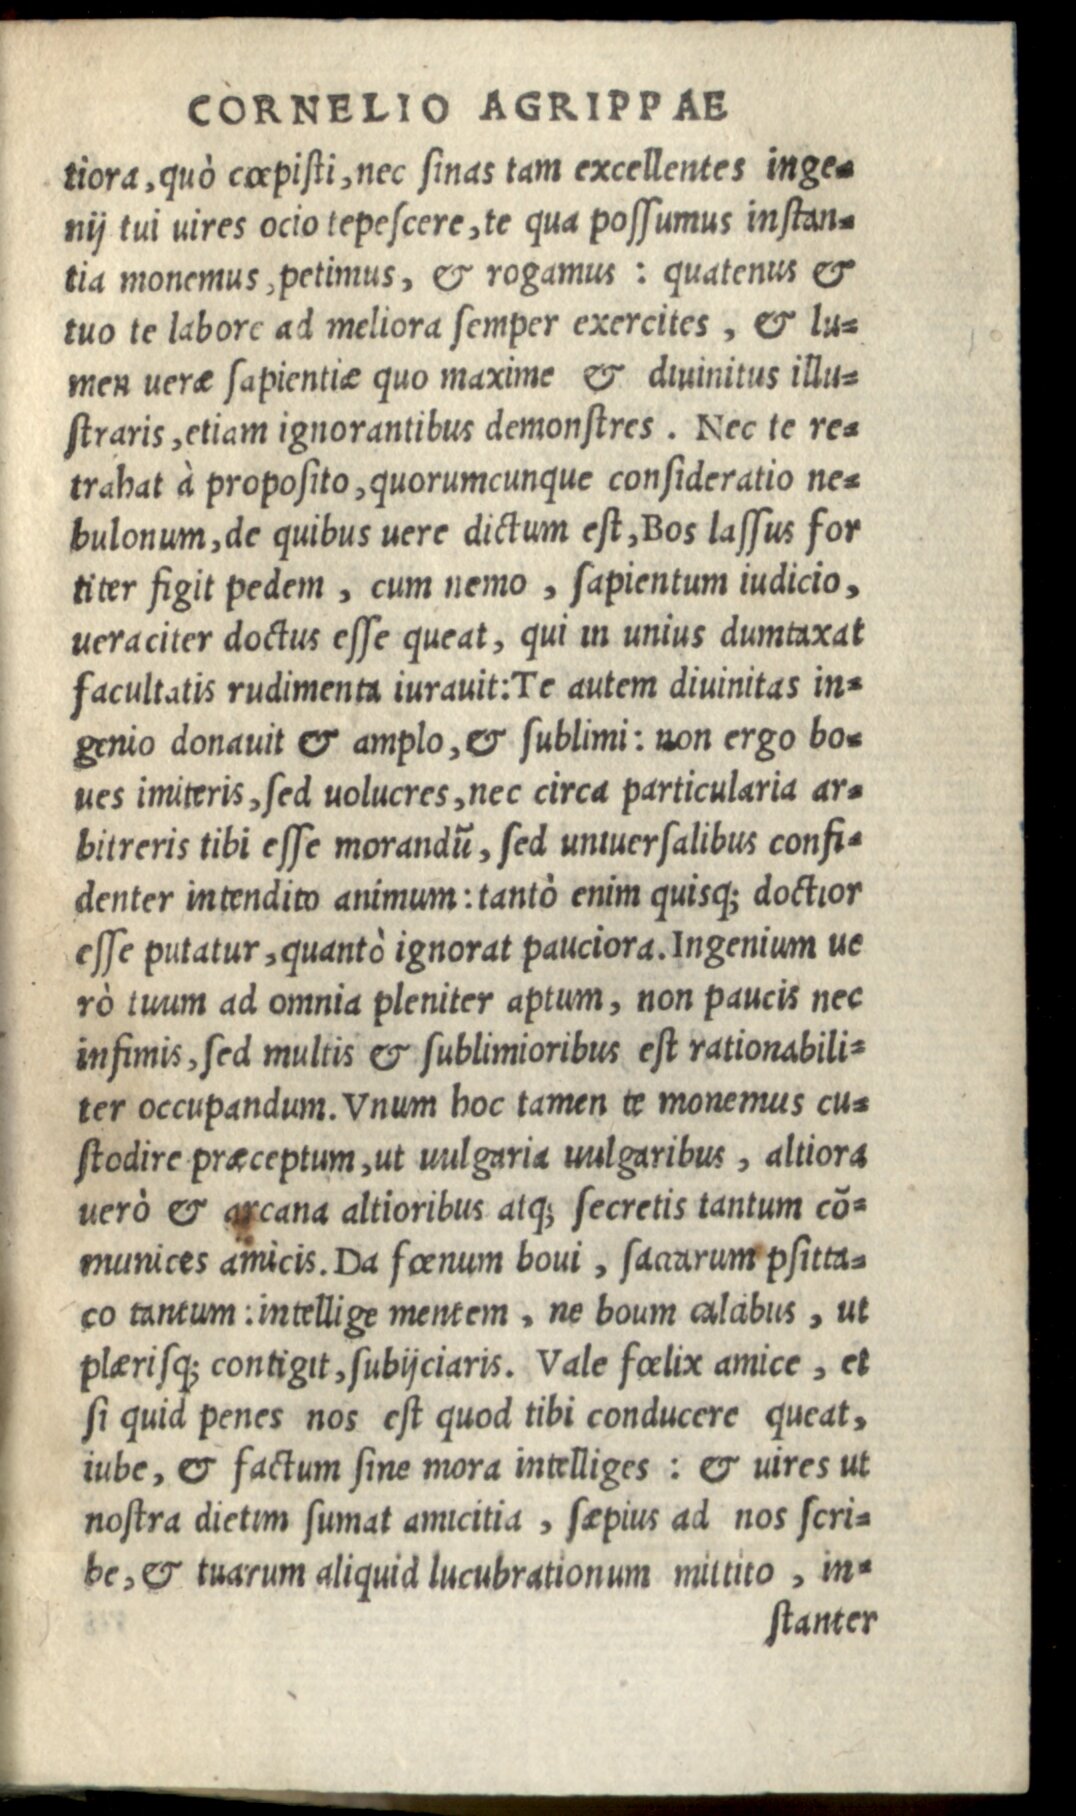 CORNELIO AGRIPPAE
tiora, quò cœpisti, nec sinas tam excellentes inge-
nij tui uires ocio tepescere, te qua possumus instan-
tia monemus, petimus, & rogamus : quatenus &
tuo te labore ad meliora semper exercites , & lu-
men ueræ sapientiæ quo maxime & diuinitus illu-
straris, etiam ignorantibus demonstres . Nec te re-
trahat à proposito, quorumcunque consideratio ne-
bulonum, de quibus uere dictum est, Bos lassus for
titer figit pedem , cum nemo , sapientum iudicio,
ueraciter doctus esse queat, qui in unius dumtaxat
facultatis rudimenta iurauit: Te autem diuinitas in-
genio donauit & amplo, & sublimi : non ergo bo-
ues imiteris, sed uolucres, nec circa particularia ar-
bitreris tibi esse morandū, sed uniuersalibus confi-
denter intendito animum : tantò enim quisq; doctior
esse putatur, quantò ignorat pauciora. Ingenium ue
rò tuum ad omnia pleniter aptum, non paucis nec
infimis, sed multis & sublimioribus est rationabili-
ter occupandum. Vnum hoc tamen te monemus cu-
stodire præceptum, ut uulgaria uulgaribus , altiora
uerò & arcana altioribus atq; secretis tantum cō-
munices amicis. Da fœnum boui , saccarum psitta-
co tantum : intellige mentem , ne boum calcibus , ut
plærisq; contigit, subijciaris. Vale fœlix amice , et
si quid penes nos est quod tibi conducere queat,
iube, & factum sine mora intelliges : & uires ut
nostra dietim sumat amicitia , sæpius ad nos scri-
be, & tuarum aliquid lucubrationum mittito , in-
stanter